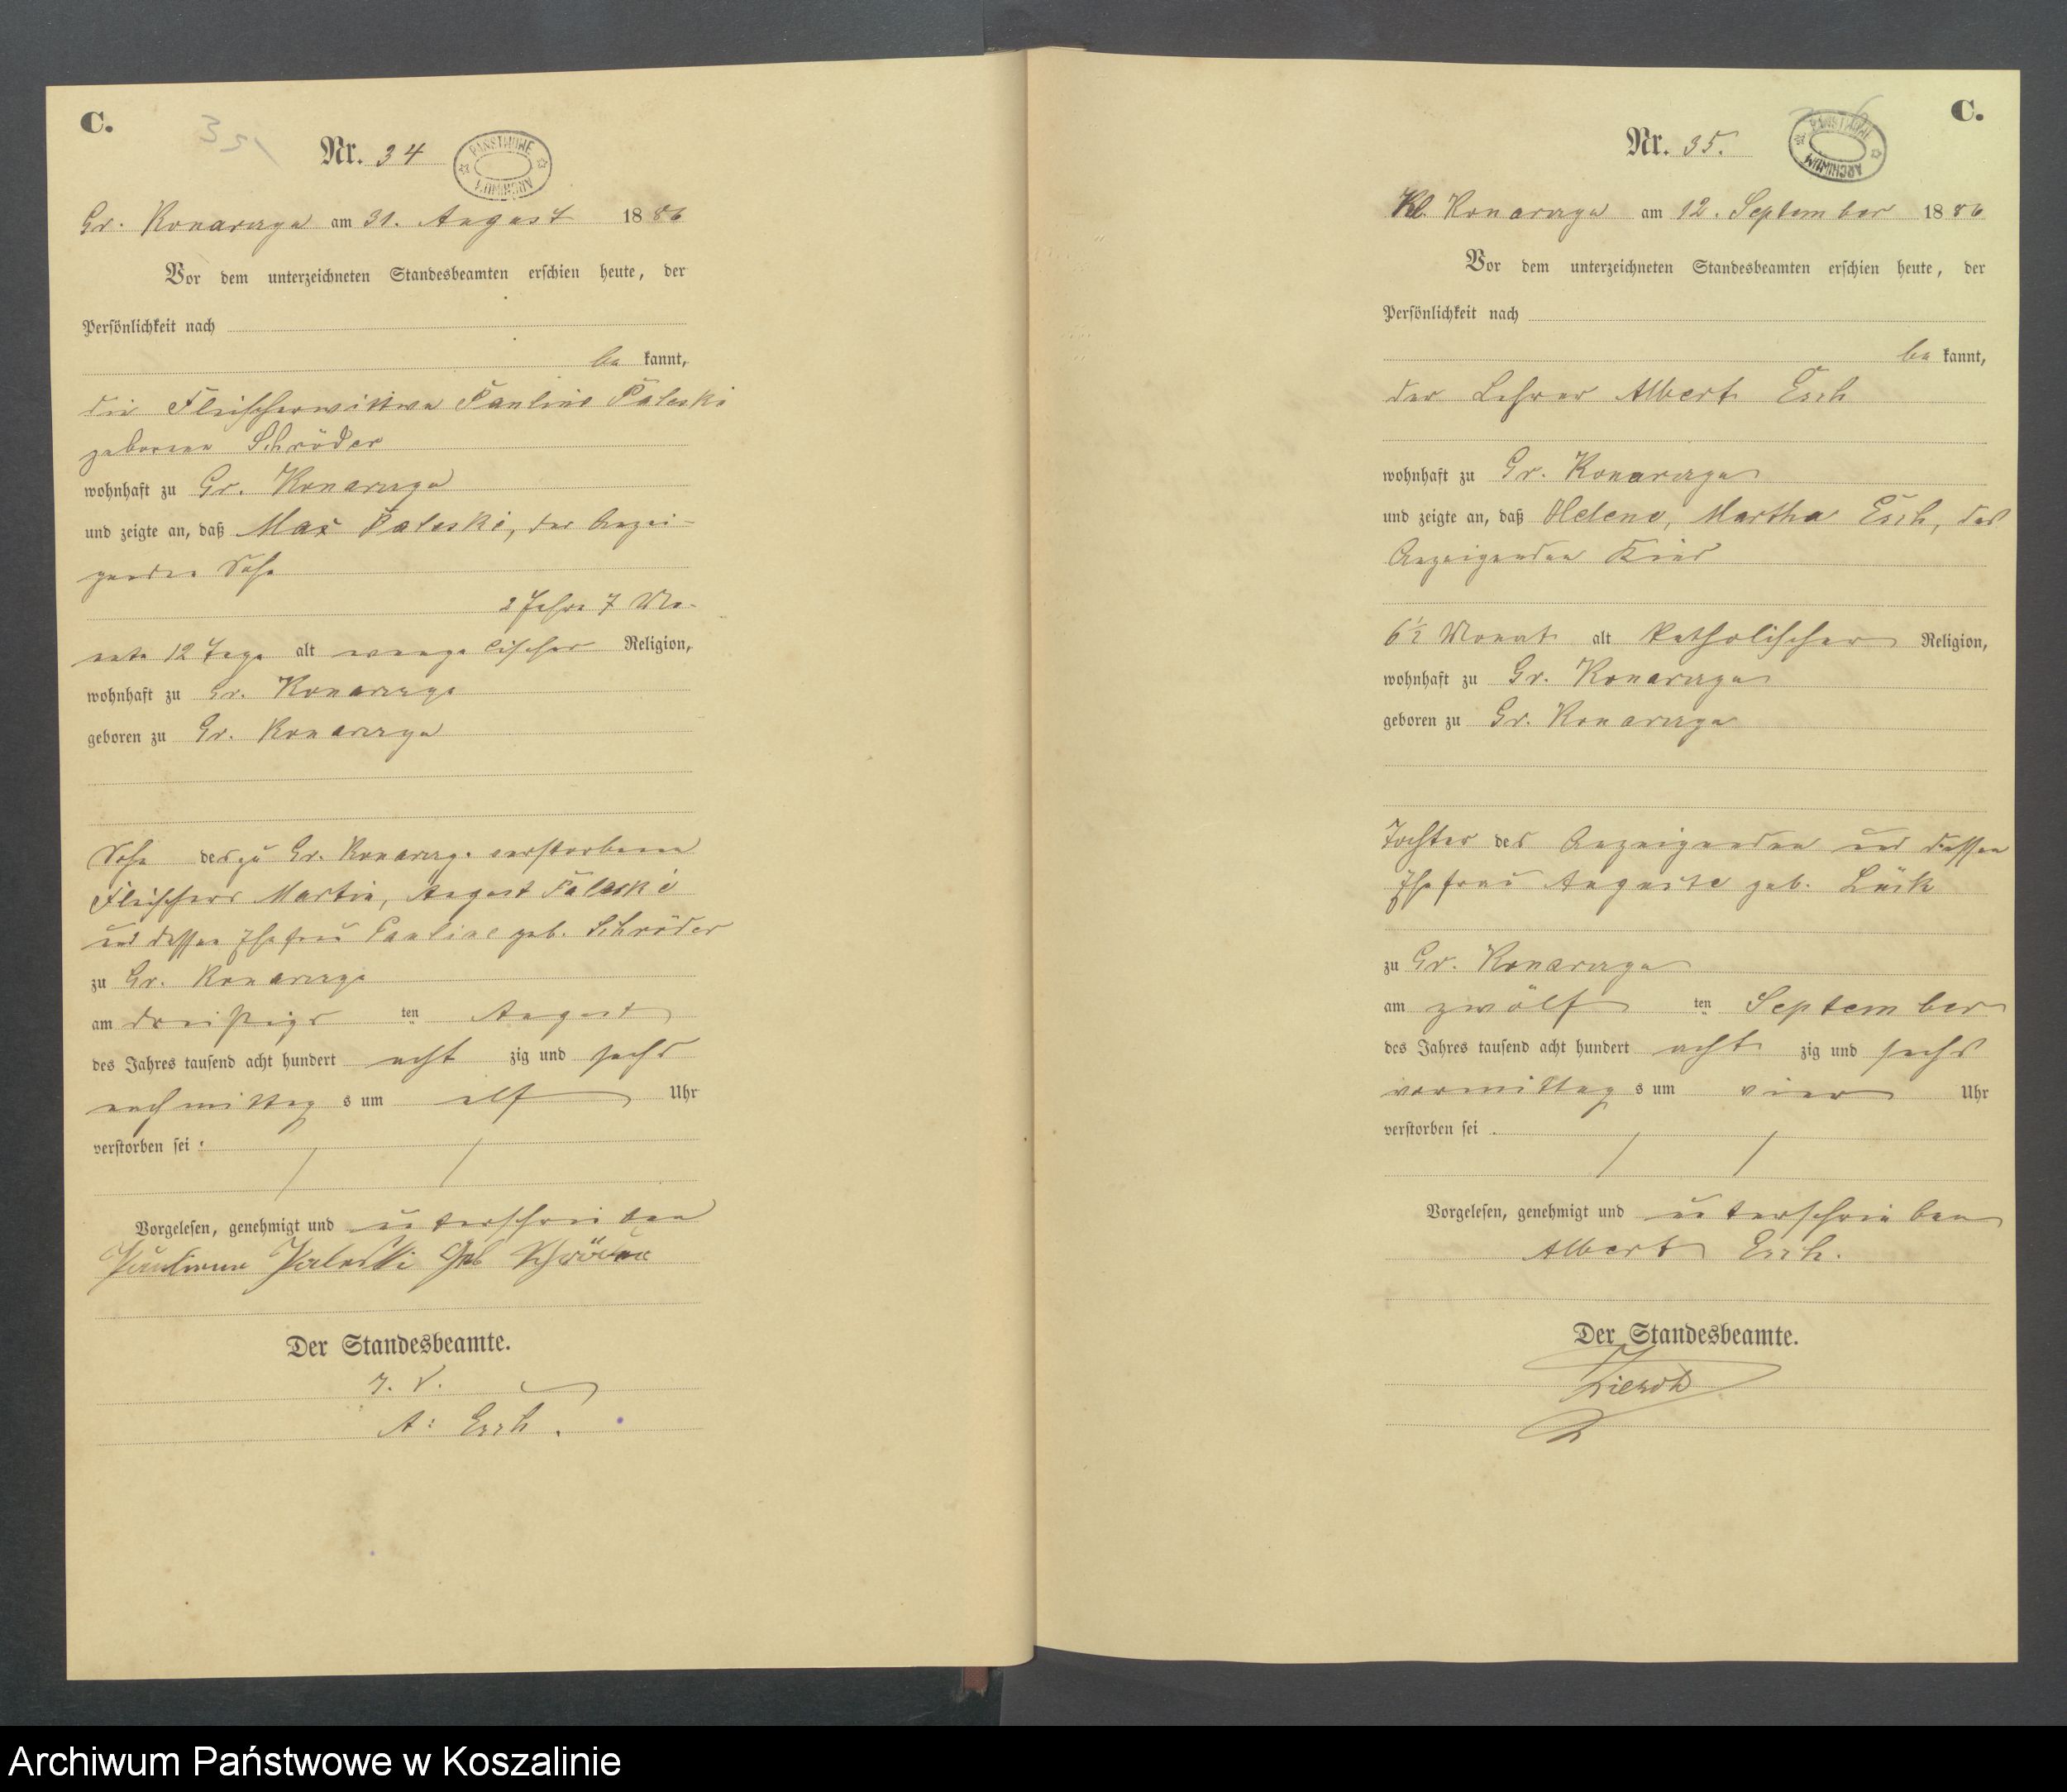 C.
Nr. 34
PAŃSTWOWE ARCHIWUM
Gr. Konarczyn am 31. August 1886
Vor dem unterzeichneten Standesbeamten erschien heute, der
Persönlichkeit nach
be kannt,
die Fleischerwittwe Pauline Paleski
geborene Schröder
wohnhaft zu Gr. Konarczyn
und zeigte an, daß Max Paleski, der Anzei-
genden Sohn
2 Jahre 7 Mo-
nate 12 Tage alt evangelischer Religion,
wohnhaft zu Gr. Konarczyn
geboren zu Gr. Konarczyn
Sohn des zu Gr. Konarczyn verstorbenen
Fleischers Martin, August Paleski
und dessen Ehefrau Pauline geb. Schröder
zu Gr. Konarczyn
am dreißigs ten August
des Jahres tausend acht hundert acht zig und sechs
nachmittag s um elf Uhr
verstorben sei.
Vorgelesen, genehmigt und unterschrieben
Pauline Paleski Geb Schröder
Der Standesbeamte.
I. V.
A: Esch.
C.
Nr. 35.
PAŃSTWOWE ARCHIWUM
Kl. Konarczyn am 12. September 1886
Vor dem unterzeichneten Standesbeamten erschien heute, der
Persönlichkeit nach
be kannt,
der Lehrer Albert Esch
wohnhaft zu Gr. Konarczyn
und zeigte an, daß Helene, Martha Esch, des
Anzeigenden Kind
6½ Monat alt katholischer Religion,
wohnhaft zu Gr. Konarczyn
geboren zu Gr. Konarczyn
Tochter des Anzeigenden und dessen
Ehefrau Auguste geb. Lück
zu Gr. Konarczyn
am zwölf ten September
des Jahres tausend acht hundert acht zig und sechs
vormittag s um vier Uhr
verstorben sei.
Vorgelesen, genehmigt und unterschrieben
Albert Esch.
Der Standesbeamte.
Archiwum Państwowe w Koszalinie